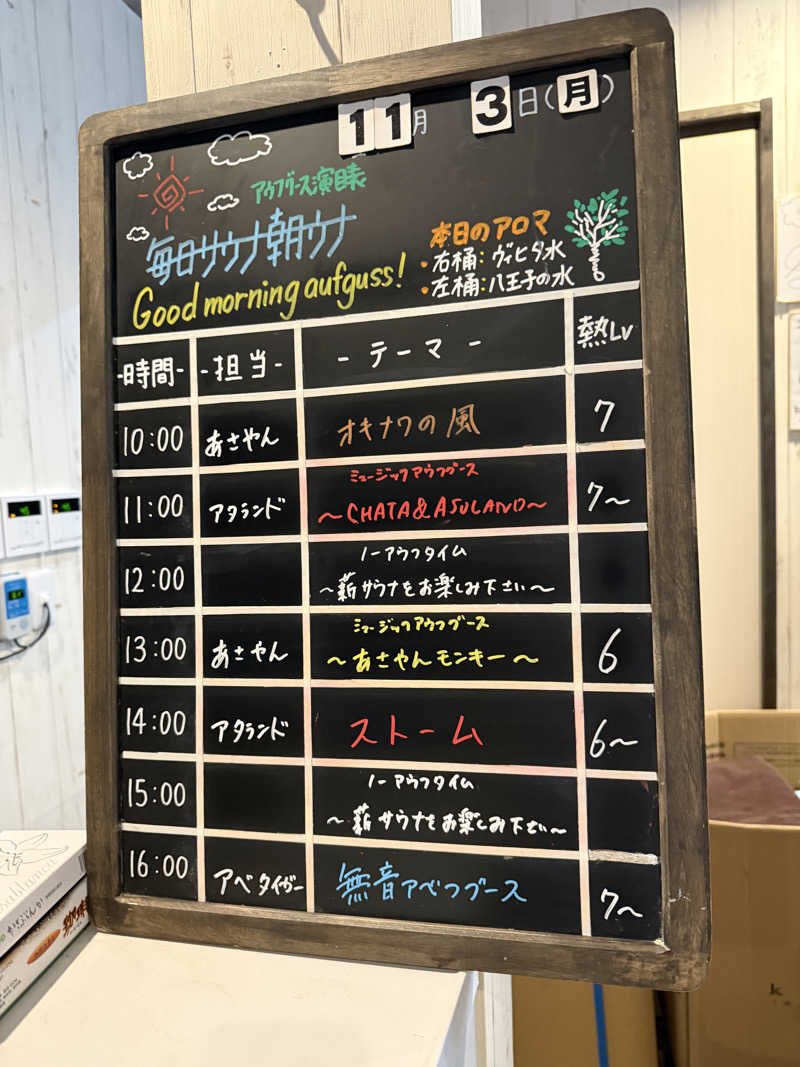 11月 3日(月)
アウフグース演目表
毎日サウナ朝ウナ
Good morning aufguss!
本日のアロマ
・右桶:ヴィヒタ水
・左桶:八王子の水
-時間- -担当- -テーマ- 熱Lv
10:00 あさやん オキナワの風 7
ミュージックアウフグース
11:00 アタランド ~CHATA&ASULAND~ 7~
ノーアウフタイム
12:00 ~薪サウナをお楽しみ下さい~
ミュージックアウフグース
13:00 あさやん ~あさやんモンキー~ 6
14:00 アタランド ストーム 6~
ノーアウフタイム
15:00 ~薪サウナをお楽しみ下さい~
16:00 アベタイガー 無音アベフグース 7~